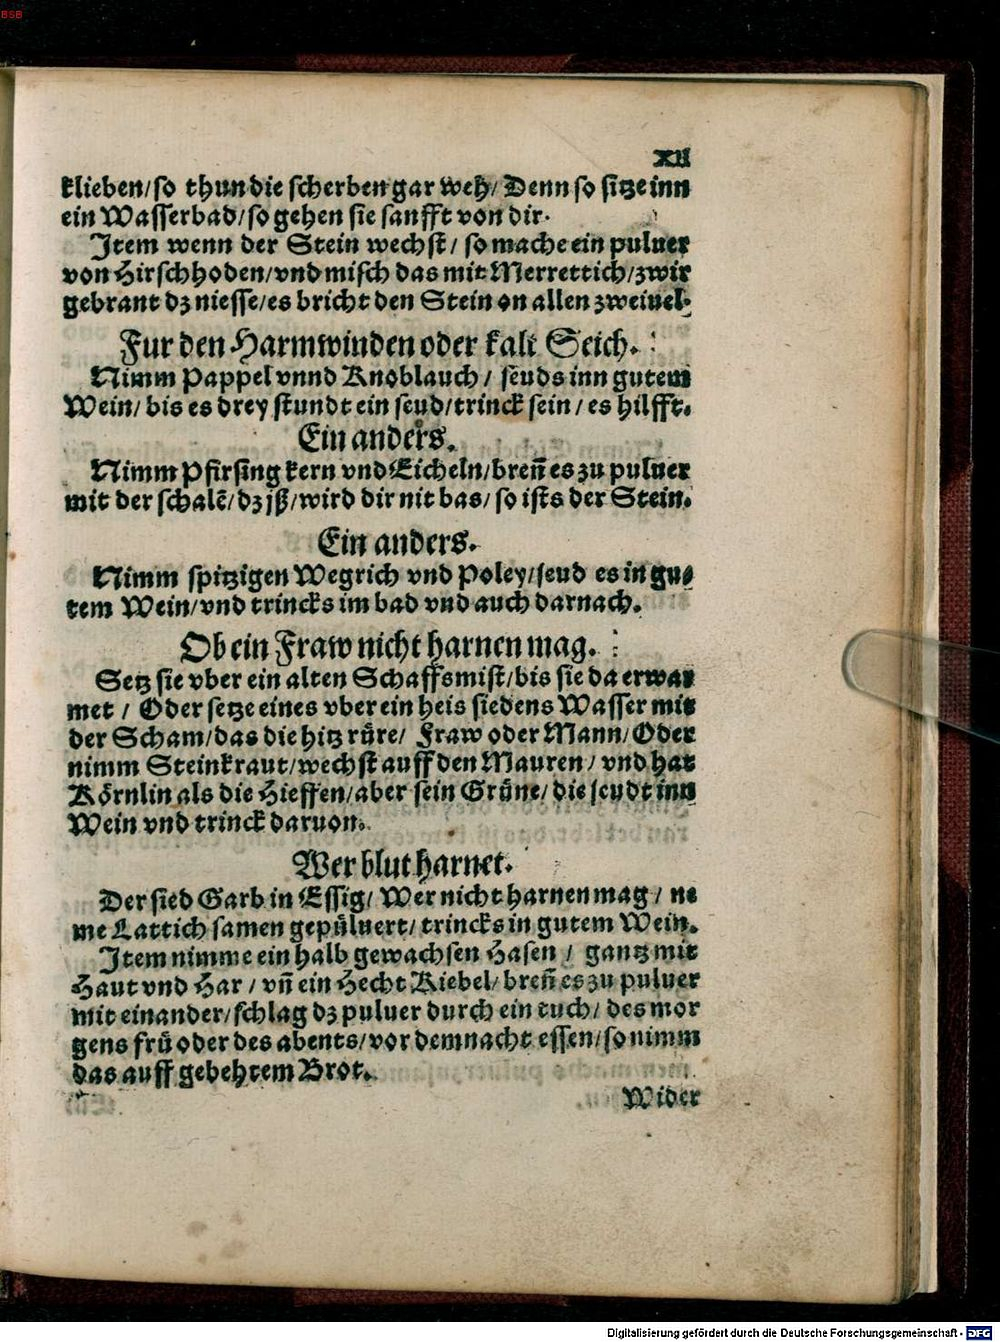 BSB
XII
klieben/so thun die scherben gar weh/ Denn so sitze inn
ein Wasserbad/so gehen sie sanfft von dir.
Item wenn der Stein wechst/ so mache ein puluer
von Hirschhoden/vnd misch das mit Merrettich/zwir
gebrant dz niesse/es bricht den Stein on allen zweiuel.
Fur den Harmwinden oder kalt Seich.
Nimm Pappel vnnd Knoblauch/ seuds inn gutem
Wein/ bis es drey stundt ein seud/trinck sein/ es hilfft.
Ein anders.
Nimm Pfirsing kern vnd Eicheln/breñ es zu puluer
mit der schalẽ/dz jß/wird dir nit bas/ so ists der Stein.
Ein anders.
Nimm spitzigen Wegrich vnd Poley/seud es in gu-
tem Wein/vnd trincks im bad vnd auch darnach.
Ob ein Fraw nicht harnen mag.
Setz sie vber ein alten Schaffsmist/bis sie da erwar
met/ Oder setze eines vber ein heis siedens Wasser mit
der Scham/das die hitz rüre/ Fraw oder Mann/Oder
nimm Steinkraut/wechst auff den Mauren/ vnd hat
Körnlin als die Hieffen/aber sein Grüne/die seudt inn
Wein vnd trinck daruon.
Wer blut harnet.
Der sied Garb in Essig/ Wer nicht harnen mag/ ne
me Lattich samen gepüluert/trincks in gutem Wein.
Item nimme ein halb gewachsen Hasen/ gantz mit
Haut vnd Har/ vñ ein Hecht Kiebel/breñ es zu puluer
mit einander/schlag dz puluer durch ein tuch/ des mor
gens frü oder des abents/vor dem nacht essen/so nimm
das auff gebehtem Brot.
Wider
Digitalisierung gefördert durch die Deutsche Forschungsgemeinschaft - DFG